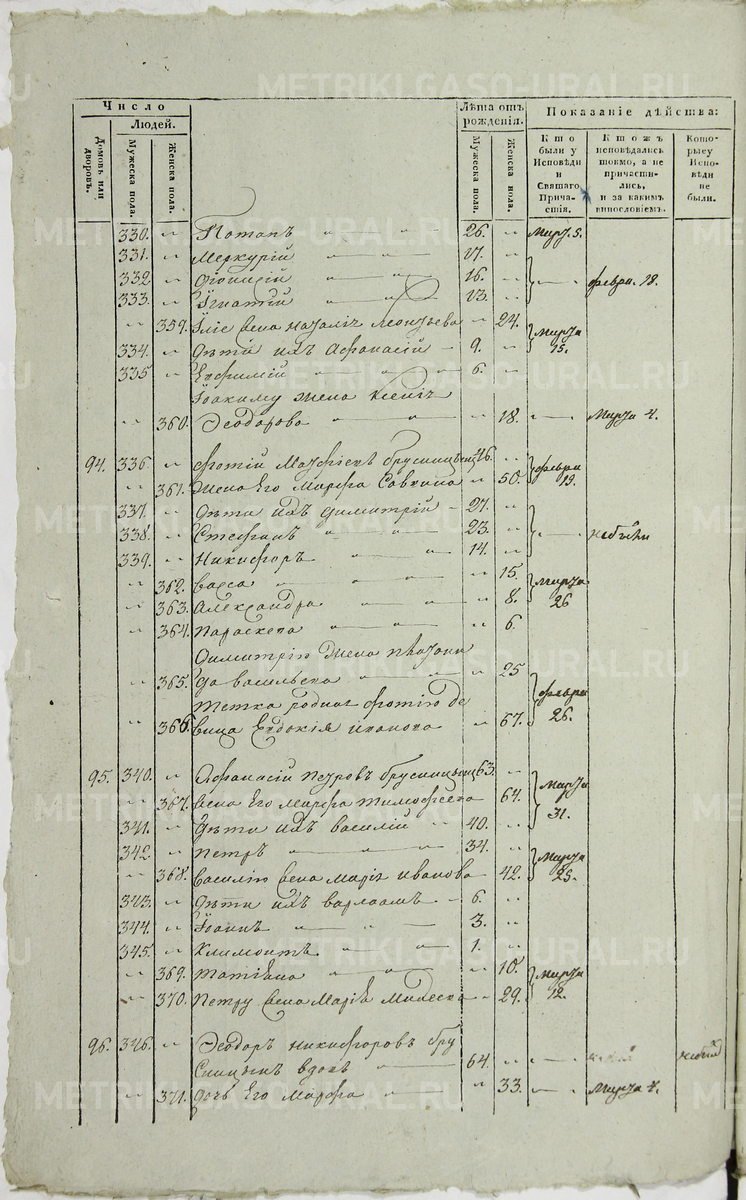 Число
Людей.
Домовъ или дворовъ.
Мужеска пола.
Женска пола.
Лѣта отъ рожденія.
Мужеска пола.
Женска пола.
Показаніе дѣйства:
Кто были у Исповѣди и Святаго Причастія.
Ктожъ исповѣдались токмо, а не причастились, и за какимъ винословіемъ.
Которыеу Исповѣди не были.
330. Потапъ 26. Марта 5.
331. Меркурій 17.
332. Діонисій 16. феврл. 18.
333. Ігнатій 13.
359. Наталія Леонтьева 24. Марта 15.
334. Дѣти ихъ Афанасій 9.
335 Евфимій 6.
Іоакиму жена Ксенія
360. Ѳеодорова 18. Марта 4.
94. 336. Фотій Брусницынъ 46. феврл 19.
361. Жена Его Марфа Саввина 50.
337. Дѣти ихъ Димитрій 27.
338. Стефанъ 23. небыли
339. Никифоръ 14.
362. Васса 15. Марта 26
363. Александра 8.
364. Параскева 6.
Димитрію жена
365. Васильева 25 феврл 26.
тетка родная Фотію де
366. вица Евдокія Иванова 67.
95. 340. Афанасій Петровъ Брусницынъ 63. Марта 31.
367. жена Его Марфа Тимофеева 64.
341. Дѣти ихъ Василій 40.
342. Петръ 34. Марта 25.
368. Василію жена Марія Иванова 42.
343. Дѣти ихъ Варлаамъ 6.
344. Іоаннъ 3.
345. Климентъ 1.
369. Татіана 10. Марта 12.
370. Петру жена Марія 29.
96. 346. Ѳеодоръ Никифоровъ Бру
сницынъ вдовъ 64. небылъ
371. дочь Его Марфа 33. Марта 4.
METRIKI.GASO-URAL.RU